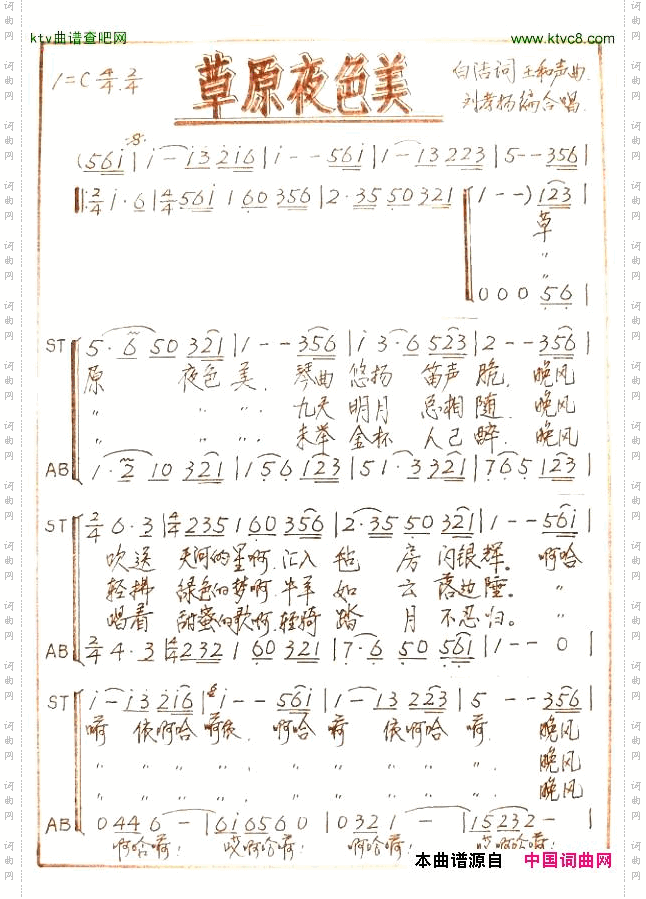 ktv曲谱查吧网 www.ktvc8.com
草原夜色美
1=C 4/4 2/4
白洁词 王和声曲.
刘孝扬编合唱.
(5 6 i | i - i 3 2 i 6 | i - - 5 6 i | 1 - 1 3 2 2 3 | 5 - - 3 5 6 |
2/4 i · 6 | 4/4 5 6 i 1 6 0 3 5 6 | 2 · 3 5 5 0 3 2 1 | 1 - - ) 1 2 3 |
草
〃
〃
0 0 0 5 6 |
ST 5 · 6 5 0 3 2 1 | 1 - - 3 5 6 | i 3 · 6 5 2 3 | 2 - - 3 5 6 |
原 夜色美. 琴曲 悠扬 笛声 脆. 晚风
〃 〃 〃. 九天 明月 总相随. 晚风
〃 〃 〃. 未举 金杯 人已醉. 晚风
AB 1 · 2 1 0 3 2 1 | 1 5 6 1 2 3 | 5 1 · 3 3 2 1 | 7 6 5 1 2 3 |
ST 2/4 6 · 3 | 4/4 2 3 5 1 6 0 3 5 6 | 2 · 3 5 5 0 3 2 1 | 1 - - 5 6 i |
吹送 天河的星啊. 汇入 毡 房 闪银辉. 啊哈
轻拂 绿色的梦啊. 牛羊 如 云 落边陲. 〃
唱着 甜蜜的歌啊. 轻骑 踏 月 不忍归。 〃
AB 2/4 4 · 3 | 4/4 2 3 2 1 6 0 3 2 1 | 7 · 6 5 0 5 6 1 | 1 - - 0 |
ST i - i 3 2 i 6 | i - - 5 6 i | 1 - 1 3 2 2 3 | 5 - - 3 5 6 |
嗬 依啊哈 嗬依. 啊哈 嗬 依啊哈 嗬. 晚风
〃 〃 〃 〃 〃 〃 〃 〃 晚风
〃 〃 〃 〃 〃 〃 〃 〃 晚风
AB 0 4 4 6 - | 6 i 6 5 6 0 | 0 3 2 1 - | 1 5 2 3 2 - |
啊哈嗬! 啊哈嗬! 啊哈嗬! 啊哈嗬!
本曲谱源自 中国词曲网